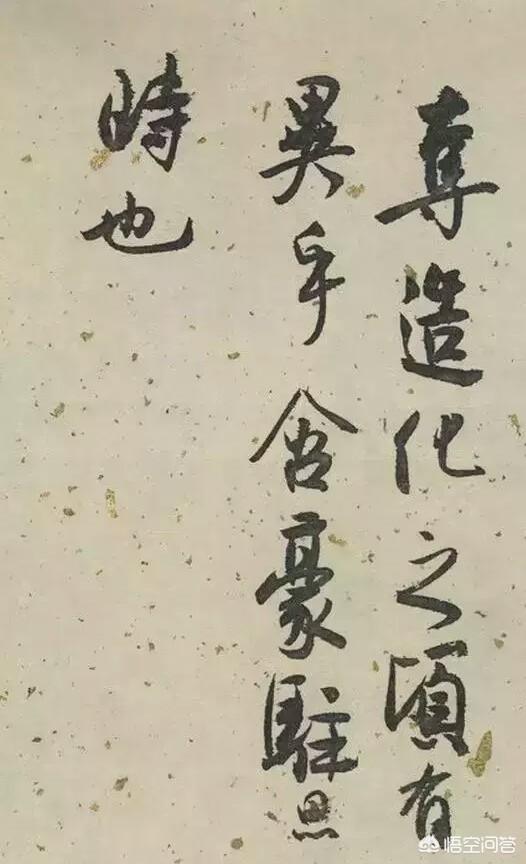 奪造化之頃有
異乎含豪駐思
時也
悟空问答